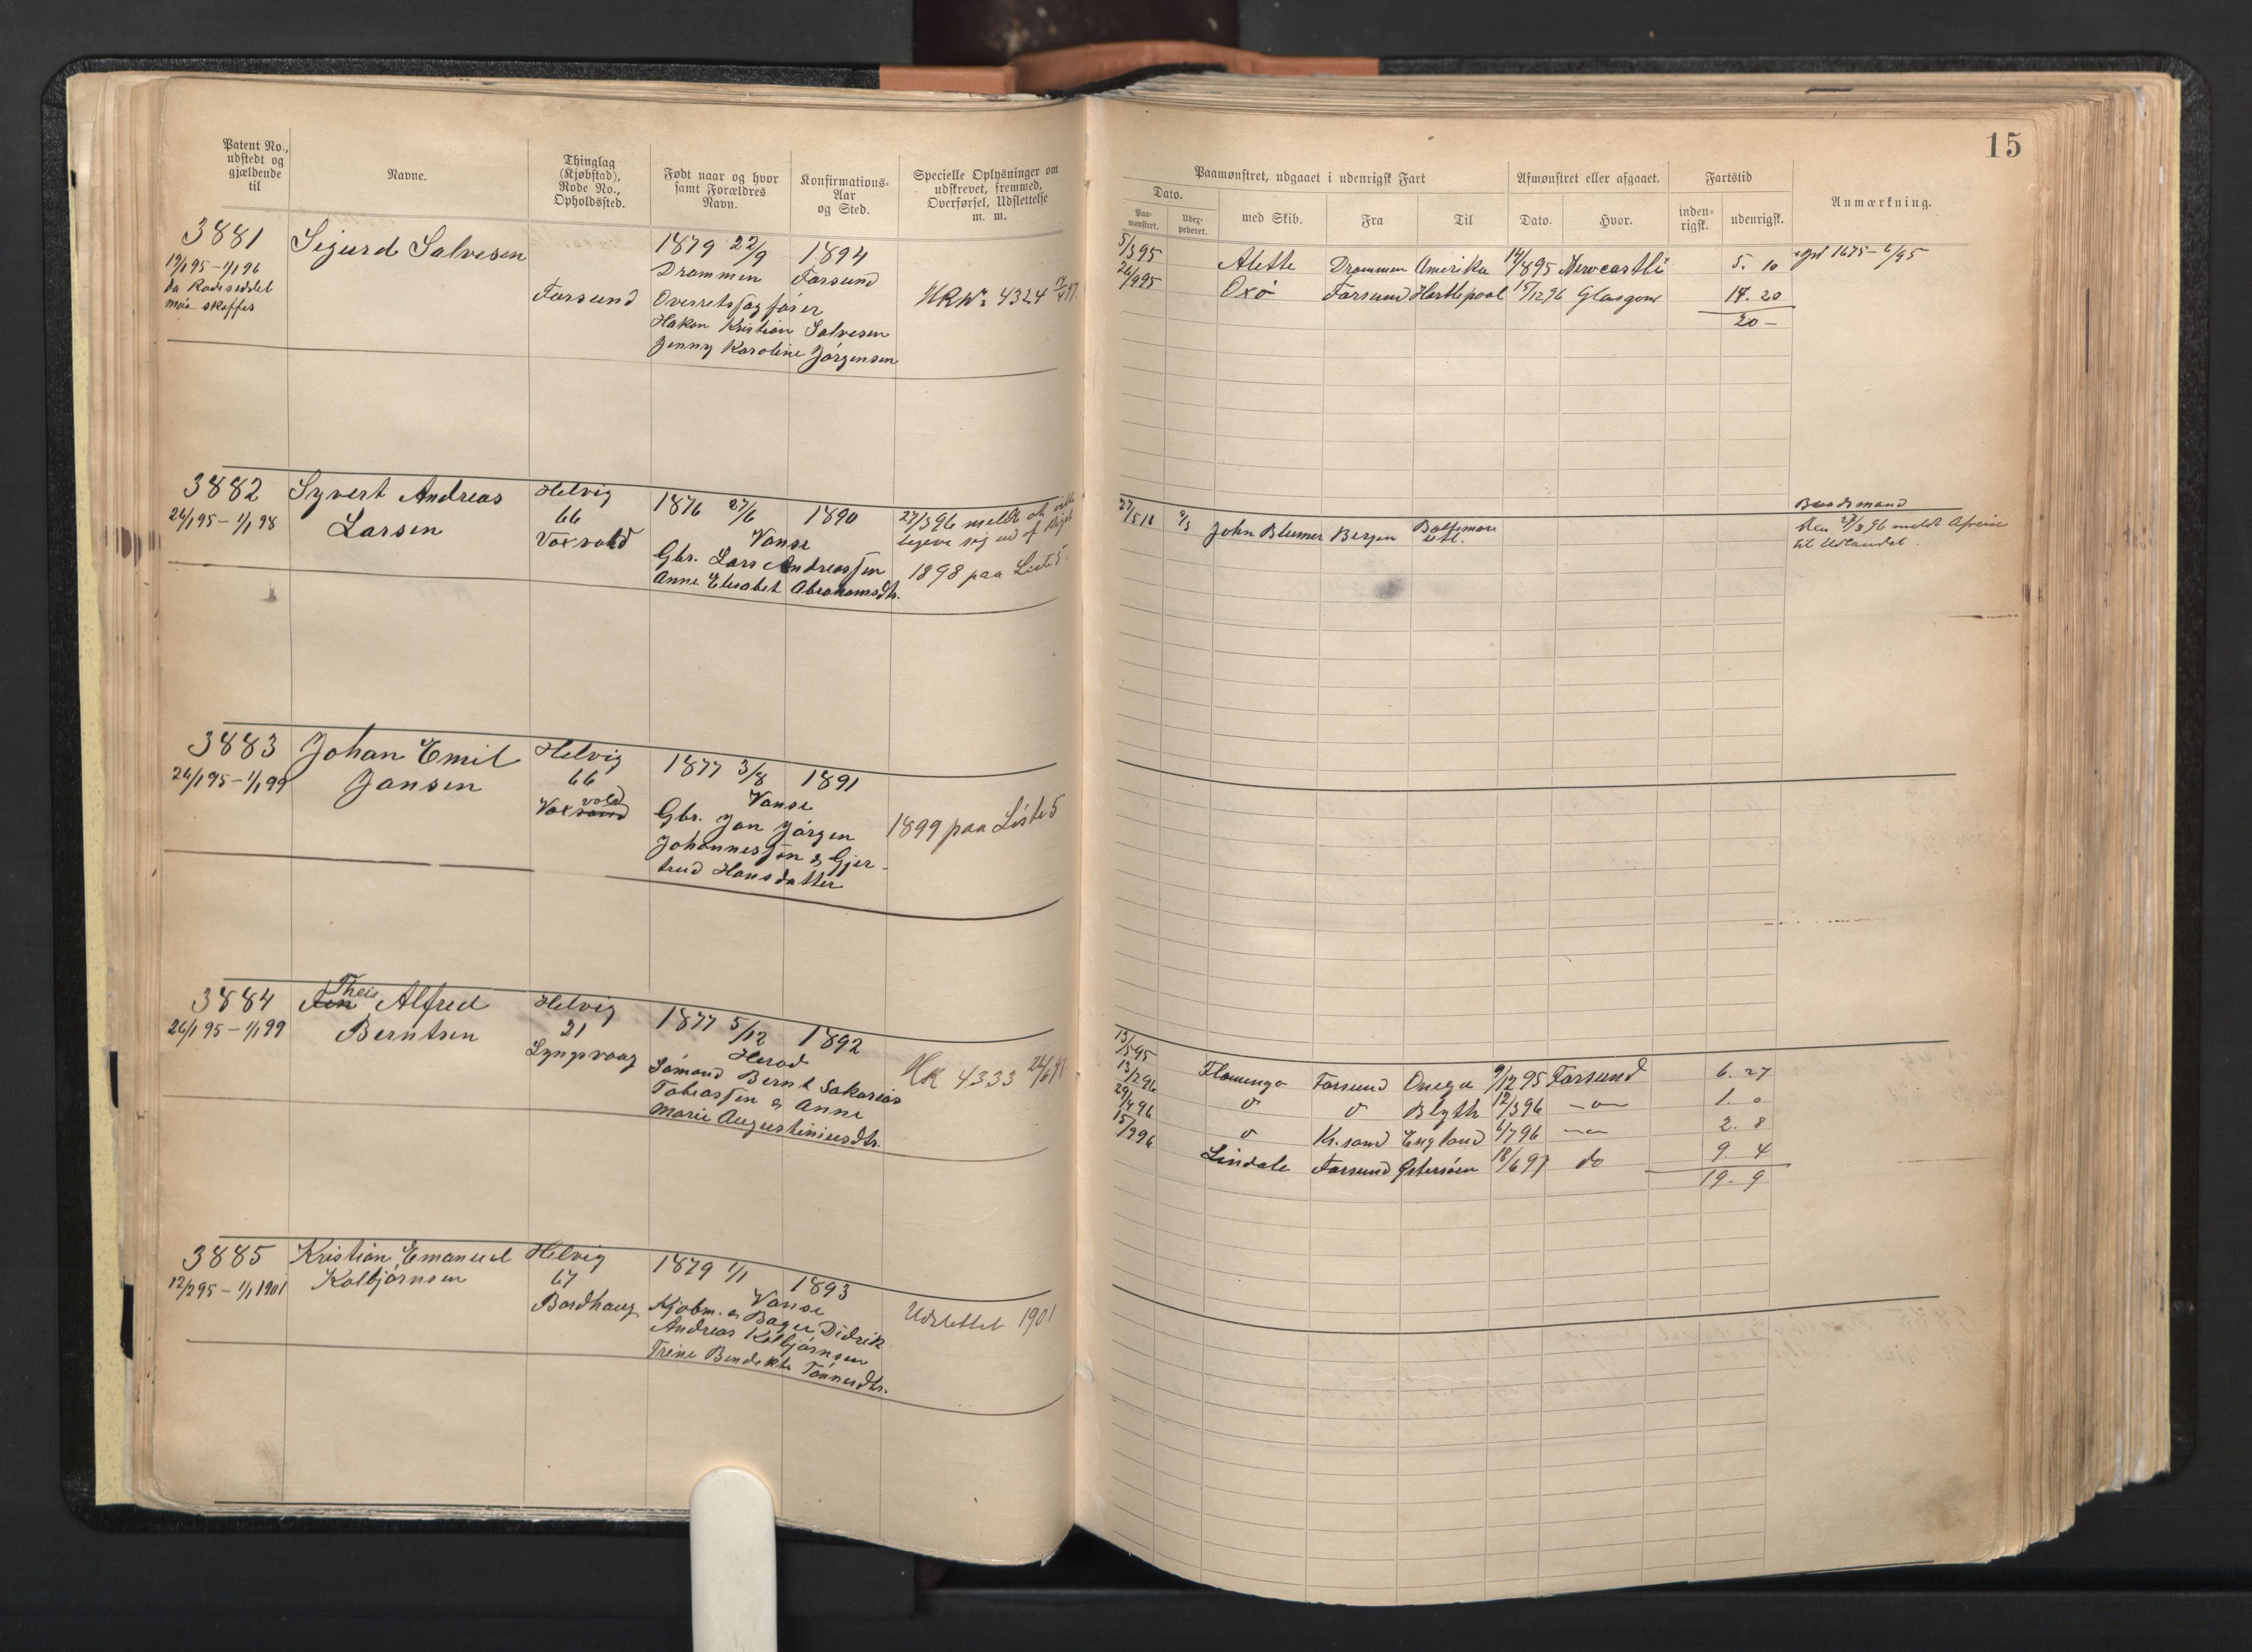 15
Patent No.,
udstedt og
gjældende
til
Navne.
Thinglag
(Kjøbstad),
Rode No.,
Opholdssted.
Født naar og hvor
samt Forældres
Navn.
Konfirmations-
Aar
og Sted.
Specielle Oplysninger om
udskrevet, fremmed,
Overførsel, Udslettelse
m. m.
Paamønstret, udgaaet i udenrigsk Fart
Afmønstret eller afgaaet.
Fartstid
Anmærkning.
Dato.
Paa-
mønstret.
Uder-
pederet.
med Skib.
Fra
Til
Dato.
Hvor.
inden-
rigsk.
udenrigsk.
3881
19/1 95 - 1/1 96
da Rodeseddel
maa skaffes
Sigurd Salvesen
Farsund
1879 22/9
Drammen
Overretssagfører
Hakon Kristian Salvesen
Jenny Karoline Jörgensen
1894
Farsund
HR No 4324
5/3 95 Alette Drammen Amerika 14/8 95 Newcastle 5. 10
26/9 95 Oxö Farsund Hartlepool 15/12 96 Glasgow 14. 20
20 -
1675 - 6/95
3882
26/1 95 - 1/1 98
Syvert Andreas
Larsen
Helvig
66
Voxvold
1876 27/6 1890
Vanse
Gbr. Lars Andreassen
Anne Elisabet Abrahamsdtr.
27/3 96 meldt at ville
begive sig ud af Riget
1898 paa Liste 5
John Blumer Bergen Baltimore
Baadsmand
den 27/3 96 meldt Afreise
til Udlandet.
3883
26/1 95 - 1/1 99
Johan Emil
Jansen
Helvig
66
vold
Voxsand
1877 3/8 1891
Vanse
Gbr. Jan Jörgen
Johannessen & Gjer-
trud Hansdatter
1899 paa Liste 5
3884
26/1 95 - 1/1 99
Theis
Alfred
Berntsen
Helvig
21
Lyngvaag
1877 5/12 1892
Herad
Sömand Bernt Sakarias
Tobiassen & Anne
Marie Augustiniusdtr.
HR 4333 24/6 97
13/5 95 Flamengo Farsund Onega 9/12 95 Farsund 6. 27
13/2 96 Blyth 12/3 96 1. 0
29/4 96 Kr.sand England 6/7 96 2. 8
15/9 96 Lindale Farsund Østersöen 18/6 97 do 9. 4
19. 9
3885
12/2 95 - 1/1 1901
Kristian Emanuel
Kolbjörnsen
Helvig
67
Bordhaug
1879 1/1 1893
Vanse
Kjöbm. & Bager Didrik
Andreas Kolbjörnsen
Trine Bendikte Tönnesdtr.
Udslettet 1901